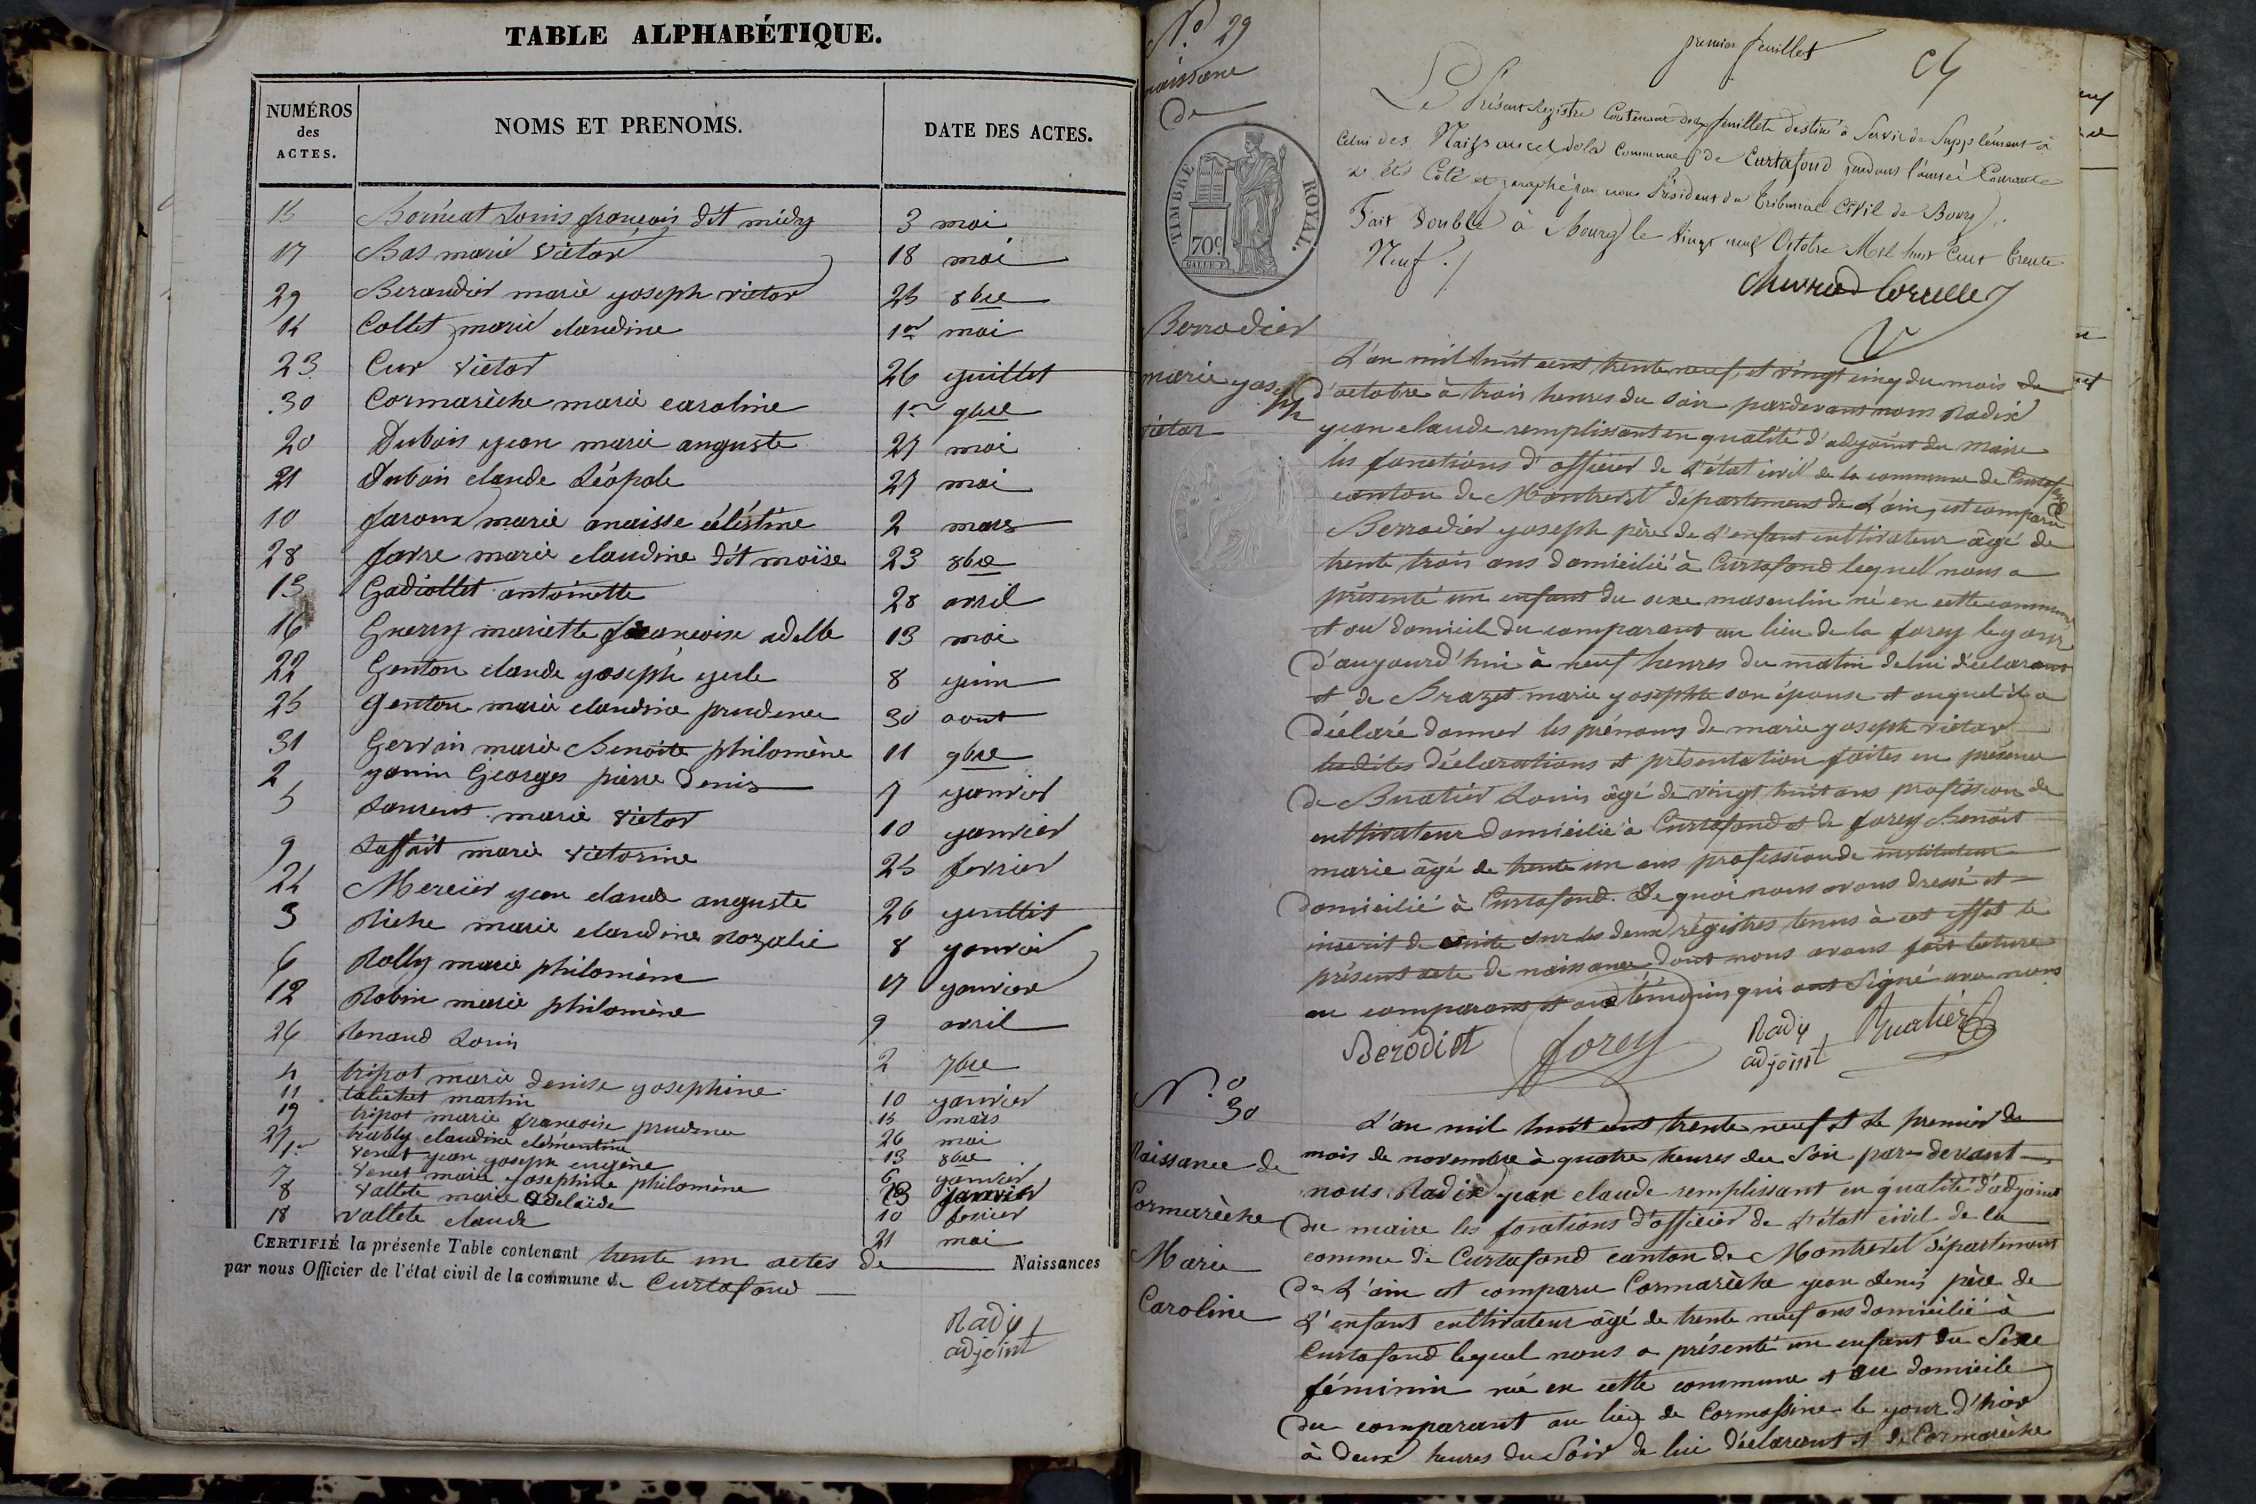 TABLE ALPHABÉTIQUE.
NUMÉROS des ACTES. NOMS ET PRENOMS. DATE DES ACTES.
15 Louis françois dit médy 3 mai
17 Bas marie Victor 18 mai
29 Beraudier marie yoseph victor 25 8bre
14 Collet marie claudine 1er mai
23 Cur Victor 26 yuillet
30 Cormarèche marie caroline 1er 9bre
20 Dubois yean marie auguste 27 mai
21 Dubois claude Léopole 27 mai
10 faroux marie anaisse céléstine 2 mars
28 favre marie claudine dit moïse 23 8bre
13 Gadiollet antoinette 28 avril
16 Guerry mariette françoise adelle 13 mai
22 Genton claude yoseph yule 8 yuin
25 Genton marie claudine prudence 30 aout
31 Gervais marie Benoite philomène 11 9bre
2 yanin Georges pierre Denis 7 yanvier
5 Laurent marie Victor 10 yanvier
9 Laffait marie Victorine 25 fevrier
24 Mercier yean claude auguste 26 yuillet
3 Riche marie claudine Rozalie 8 yanvier
6 Rolly marie philomène 17 yanvier
12 Robin marie philomène 9 avril
26 Renaud Louis 2 7bre
4 tripot marie denise yosephine 10 yanvier
11 martin 15 mars
19 tripot marie françoise prudence 26 mai
27 claudine clémentine 13 8bre
1er Venet yean yoseph eugène 6 yanvier
7 Venet marie yosephine philomène yanvier
8 Vallete marie adelaïde 10 fevrier
18 Vallete claude 21 mai
CERTIFIÉ la présente Table contenant trente un actes de Naissances
par nous Officier de l'état civil de la commune de Curtafond
Rady
adjoint
premier feuillet
Le Présent Registre Contenant deux feuillets destiné à Servir de Supplément à
Celui des Naissances de la Commune de Curtafond pendant l'année Courante
a été Coté et paraphé par nous Président du Tribunal Civil de Bourg.
Fait Double à Bourg le Vingt neuf Octobre Mil huit Cent trente
Neuf.
N.o 29
naissance
de
TIMBRE ROYAL.
70c
Berrodier
marie yoseph
victor
L'an mil huit cent trente neuf, et vingt cinq du mois de
d'octobre à trois heures du soir pardevant nous Radix
yean claude remplissant en qualité d'adyoint du maire
les fonctions d'officier de l'état civil de la commune de Curtafond
canton de Montrevel département de L'ain, est comparu
Berrodier yoseph père de l'enfant cultivateur âgé de
trente trois ans domicilié à Curtafond lequel nous a
présenté un enfant du sexe masculin né en cette commune
et au domicile du comparant au lieu de la forey le your
d'auyourd'hui à neuf heures du matin de lui déclarant
et de Brazet marie yosephte son épouse et auquel il a
déclaré donner les prénoms de marie yoseph victor
lesdites déclarations et présentation faites en présence
de Buatier Louis âgé de vingt huit ans profession de
cultivateur domicilié à Curtafond et de forey Benoît
marie âgé de trente un ans profession de instituteur
domicilié à Curtafond. De quoi nous avons dressé et
inscrit de suite sur les deux régistres tenus à cet effet le
présent acte de naissance dont nous avons fait lecture
au comparant et aux témoins qui ont Signé avec nous
Berodiet forey Rady adjoint Buatier
N.o 30
Naissance de
Cormarèche
Marie
Caroline
L'an mil huit cent trente neuf et le premier du
mois de novembre à quatre heures du Soir par-devant
nous Radix yean claude remplissant en qualité d'adyoint
du maire les fonctions d'officier de l'état civil de la
comme de Curtafond canton de Montrevel département
de L'ain et comparu Cormarèche yean denis père de
L'enfant cultivateur âgé de trente neuf ans domicilié à
Curtafond lequel nous a présenté un enfant du Séxe
féminin né en cette commune et au domicile
du comparant au lieu de Cormassine le your d'hier
à deux heures du Soir de lui déclarant et de Cormarèche